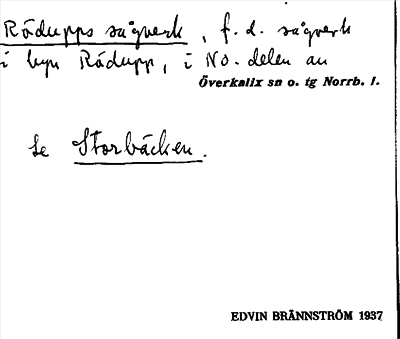 Rödupps sågverk, f.d. sågverk
i byn Rödupp, i NO. delen av
Överkalix sn o. tg Norrb. l.
Se Storbäcken.
EDVIN BRÄNNSTRÖM 1937